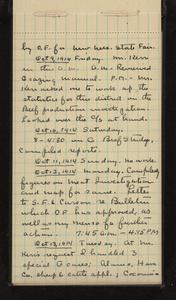 by D.F. for New Mex. State Fair.
Oct 9, 1914 Friday. Mr. Kerr
in this A.M. A.M. - Reviewed
Grazing Manual. P.M. - Mr.
Kerr asked me to work up the
statistics for this district on the
Beef production investigation -
looked over the at hand.
Oct. 10, 1914 Saturday.
8 - 4:30 on G. Beef Study,
Compiled reports.
Oct. 11, 1914 Sunday. No work.
Oct. 12, 1914 Monday. Compiled
figures on meat Investigation
and map for same. Letter
to S.F. & Carson re Bulletin
which D.F. has approved, as
well as my Memo for further
action. 7:45 a.m. - 4:45 P.M.
Oct. 13, 1914 Tuesday. At Mr.
Kerr's request I handled 3
special G. cases; Alamo, Ham
Co. sheep & cattle appl.; Coconino